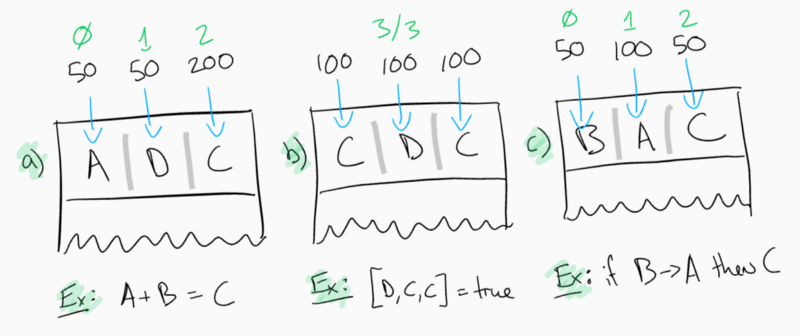 Ø 1 2
50 50 200
a) A D C
Ex: A+B = C
3/3
100 100 100
b) C D C
Ex: [D,C,C] = true
Ø 1 2
50 100 50
c) B A C
Ex: if B→A then C